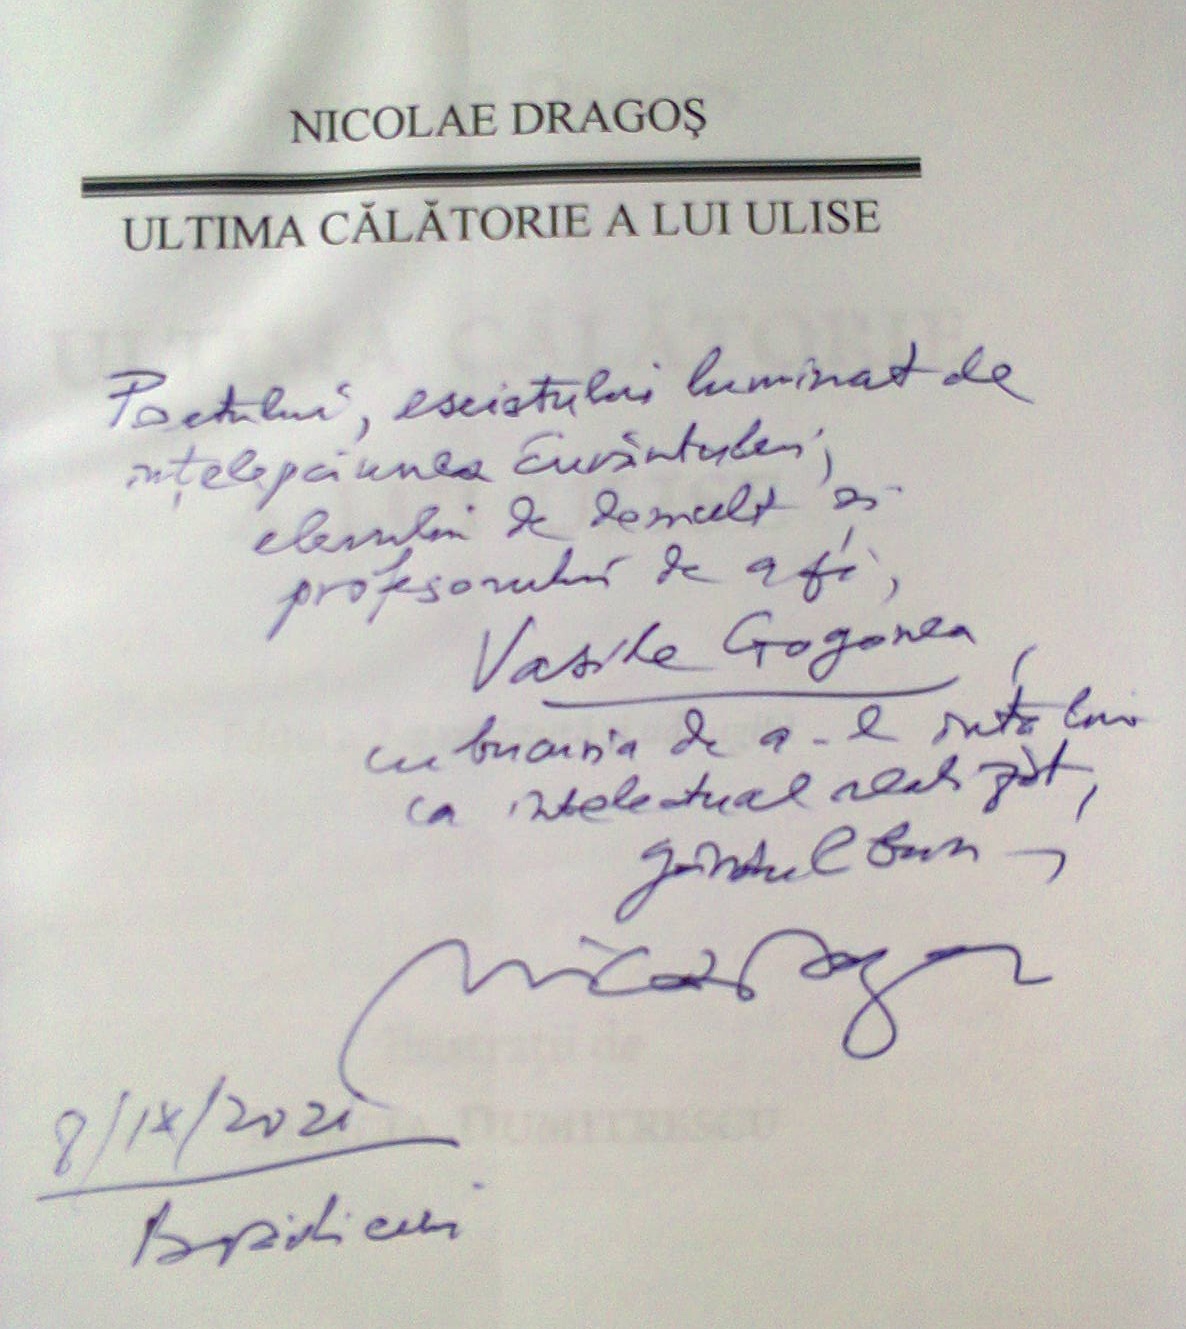 NICOLAE DRAGOŞ
ULTIMA CĂLĂTORIE A LUI ULISE
Poetului, eseistului luminat de
înțelepciunea Cuvântului,
elevului de demult și
profesorului de a fi,
Vasile Gogonea,
cu bucuria de a-l întâlni
ca intelectual realizat,
gândul bun
8/IX/2021